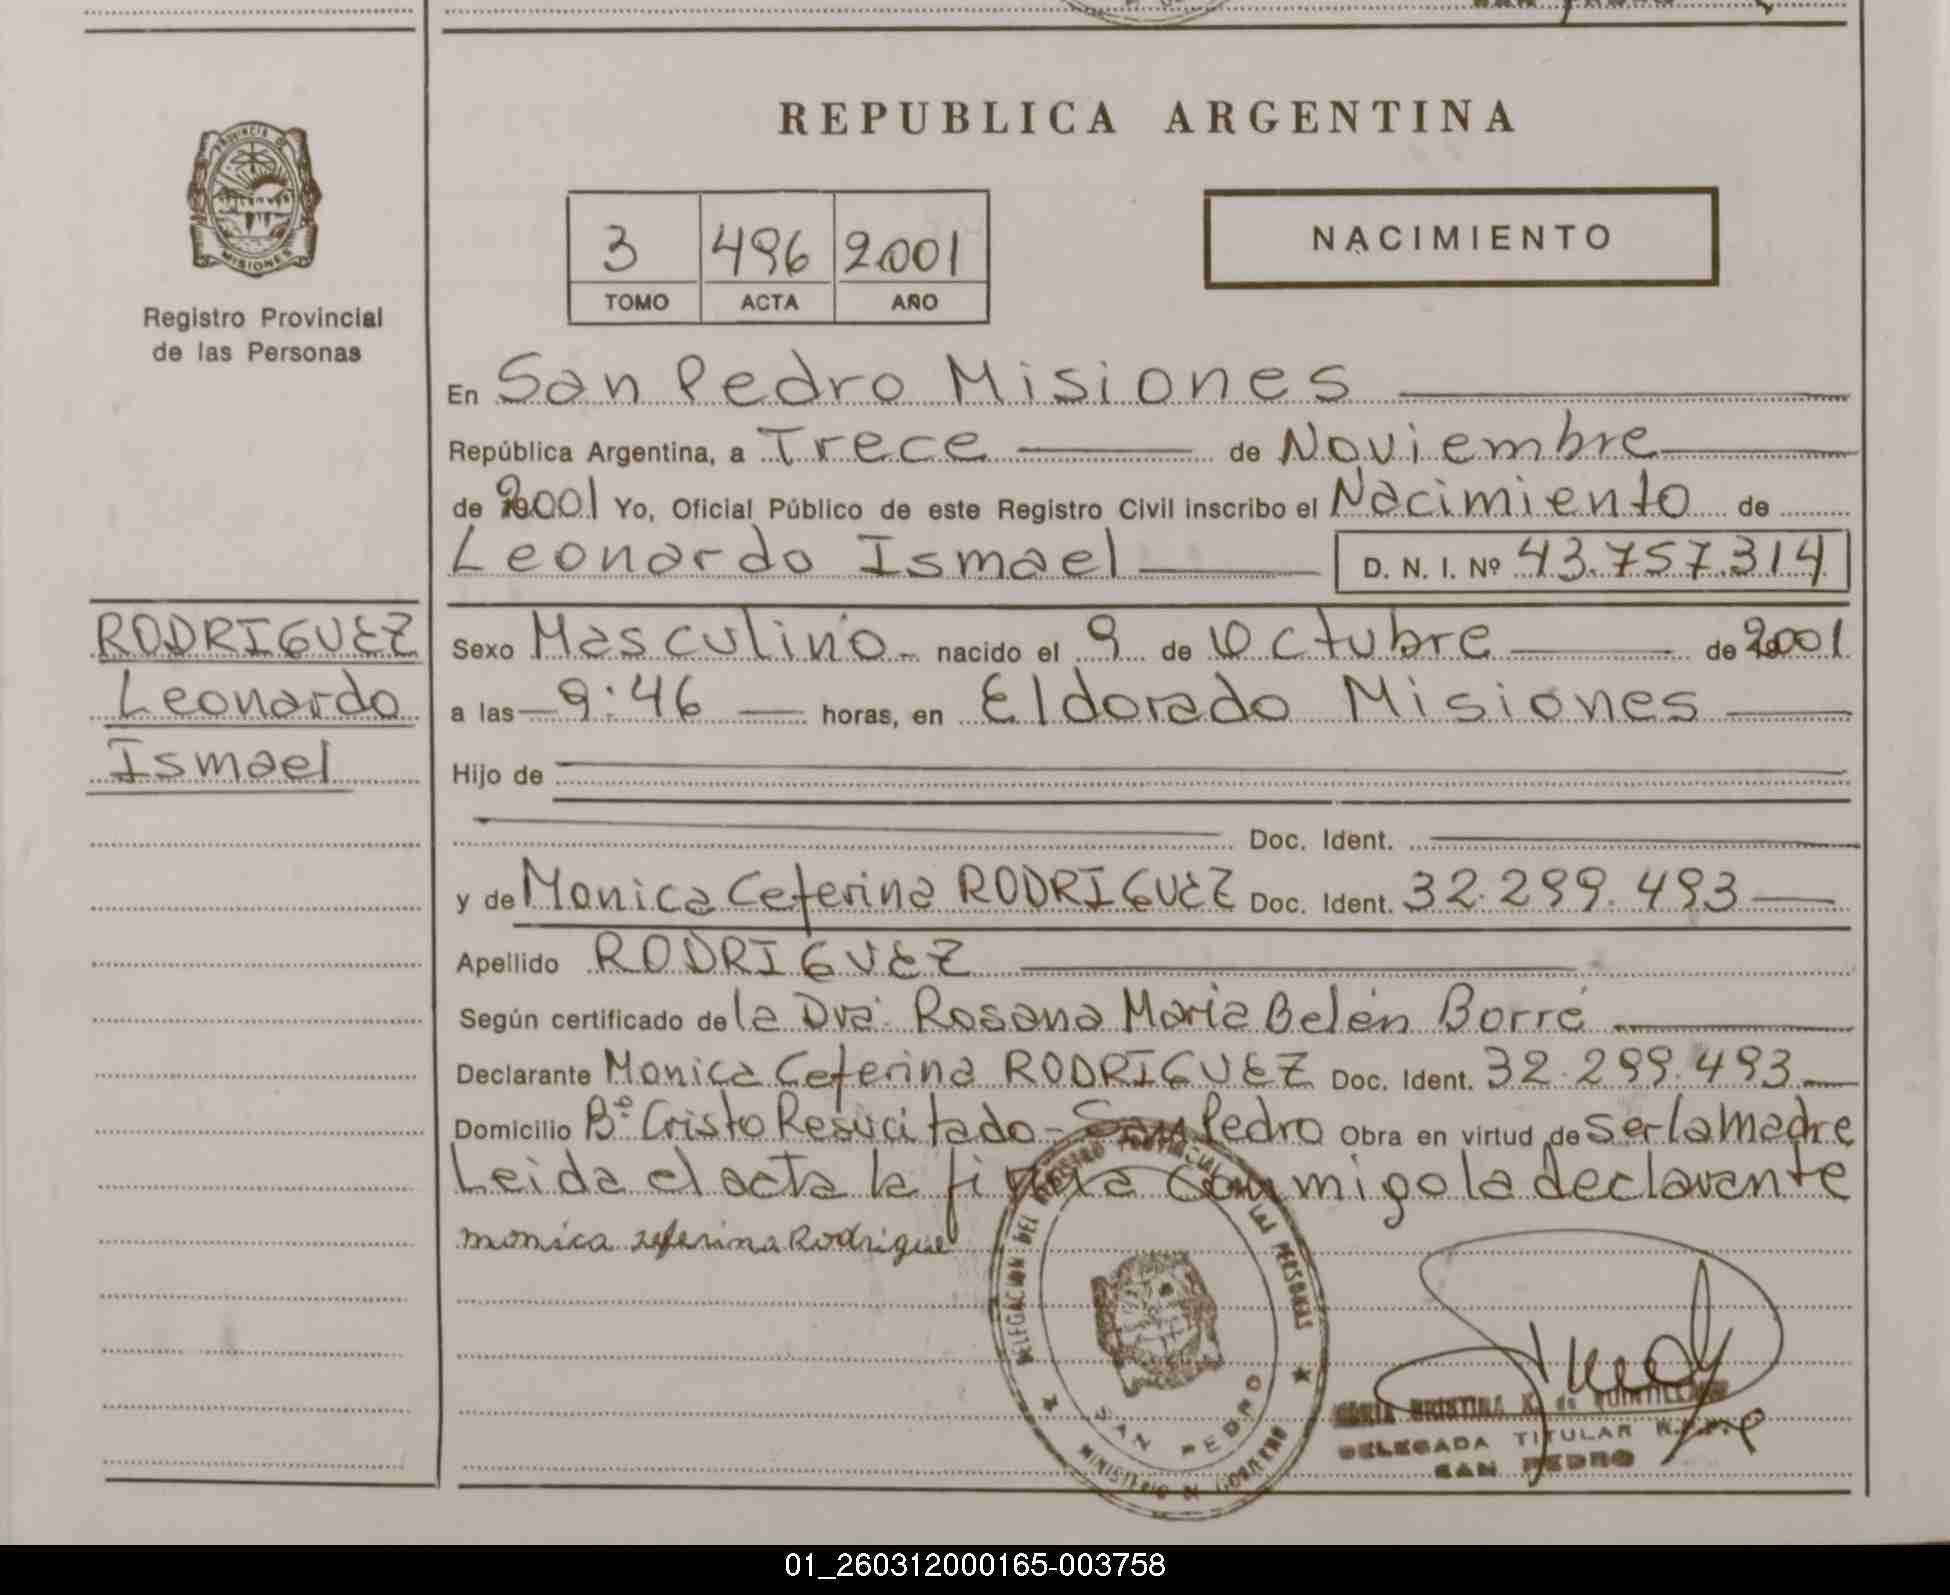 REPUBLICA ARGENTINA
PROVINCIA DE
MISIONES
Registro Provincial
de las Personas
3 496 2001
TOMO ACTA AÑO
NACIMIENTO
En San Pedro Misiones
República Argentina, a Trece de Noviembre
de 2001 Yo, Oficial Público de este Registro Civil inscribo el Nacimiento de
Leonardo Ismael D. N. I. Nº 43.757.314
RODRIGUEZ
Leonardo
Ismael
Sexo Masculino nacido el 9 de Octubre de 2001
a las 9:46 horas, en Eldorado Misiones
Hijo de
Doc. Ident.
y de Monica Ceferina RODRIGUEZ Doc. Ident. 32.299.493
Apellido RODRIGUEZ
Según certificado de la Dra. Rosana Maria Belén Borré
Declarante Monica Ceferina RODRIGUEZ Doc. Ident. 32.299.493
Domicilio Bº Cristo Resucitado - San Pedro Obra en virtud de ser la madre
Leida el acta la firma conmigo la declarante
monica seferina Rodrigue
DELEGACION DEL REGISTRO PROVINCIAL DE LAS PERSONAS
SAN PEDRO
MINISTERIO DE GOBIERNO
CRISTINA K. de QUINTILLANO
DELEGADA TITULAR R.P.P.
SAN PEDRO
01_260312000165-003758